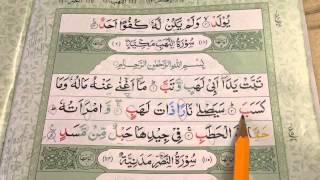 يُوْلَدْ ۙ وَلَمْ يَكُنْ لَّهٗ كُفُوًا اَحَدٌ
سُوْرَةُ اللَّهَبِ مَكِّيَّةٌ
بِسْمِ اللهِ الرَّحْمٰنِ الرَّحِيْمِ
تَبَّتْ يَدَآ اَبِيْ لَهَبٍ وَّتَبَّ ؕ مَآ اَغْنٰى عَنْهُ مَالُهٗ وَمَا
كَسَبَ ؕ سَيَصْلٰى نَارًا ذَاتَ لَهَبٍ ۚ وَّامْرَاَتُهٗ ؕ
حَمَّالَةَ الْحَطَبِ ۚ فِيْ جِيْدِهَا حَبْلٌ مِّنْ مَّسَدٍ
سُوْرَةُ النَّصْرِ مَدَنِيَّةٌ